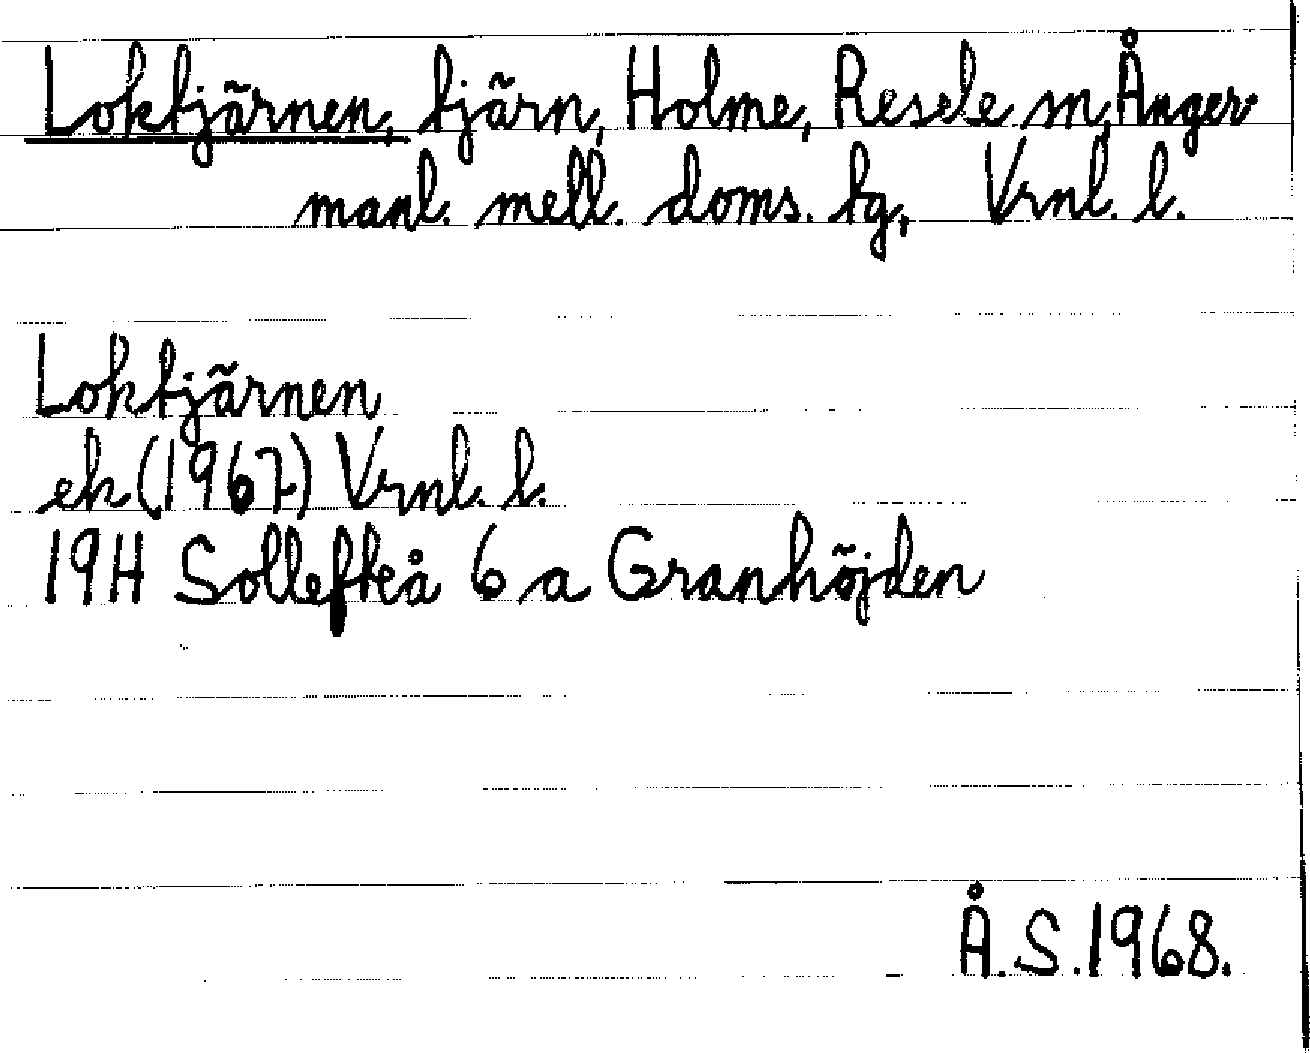 Loktjärnen, tjärn, Holme, Resele sn, Ånger-
manl. mell. doms. tg, Vrnl. l.
Loktjärnen
ek (1967) Vrnl. l.
19H Sollefteå 6 a Granhöjden
Å.S.1968.